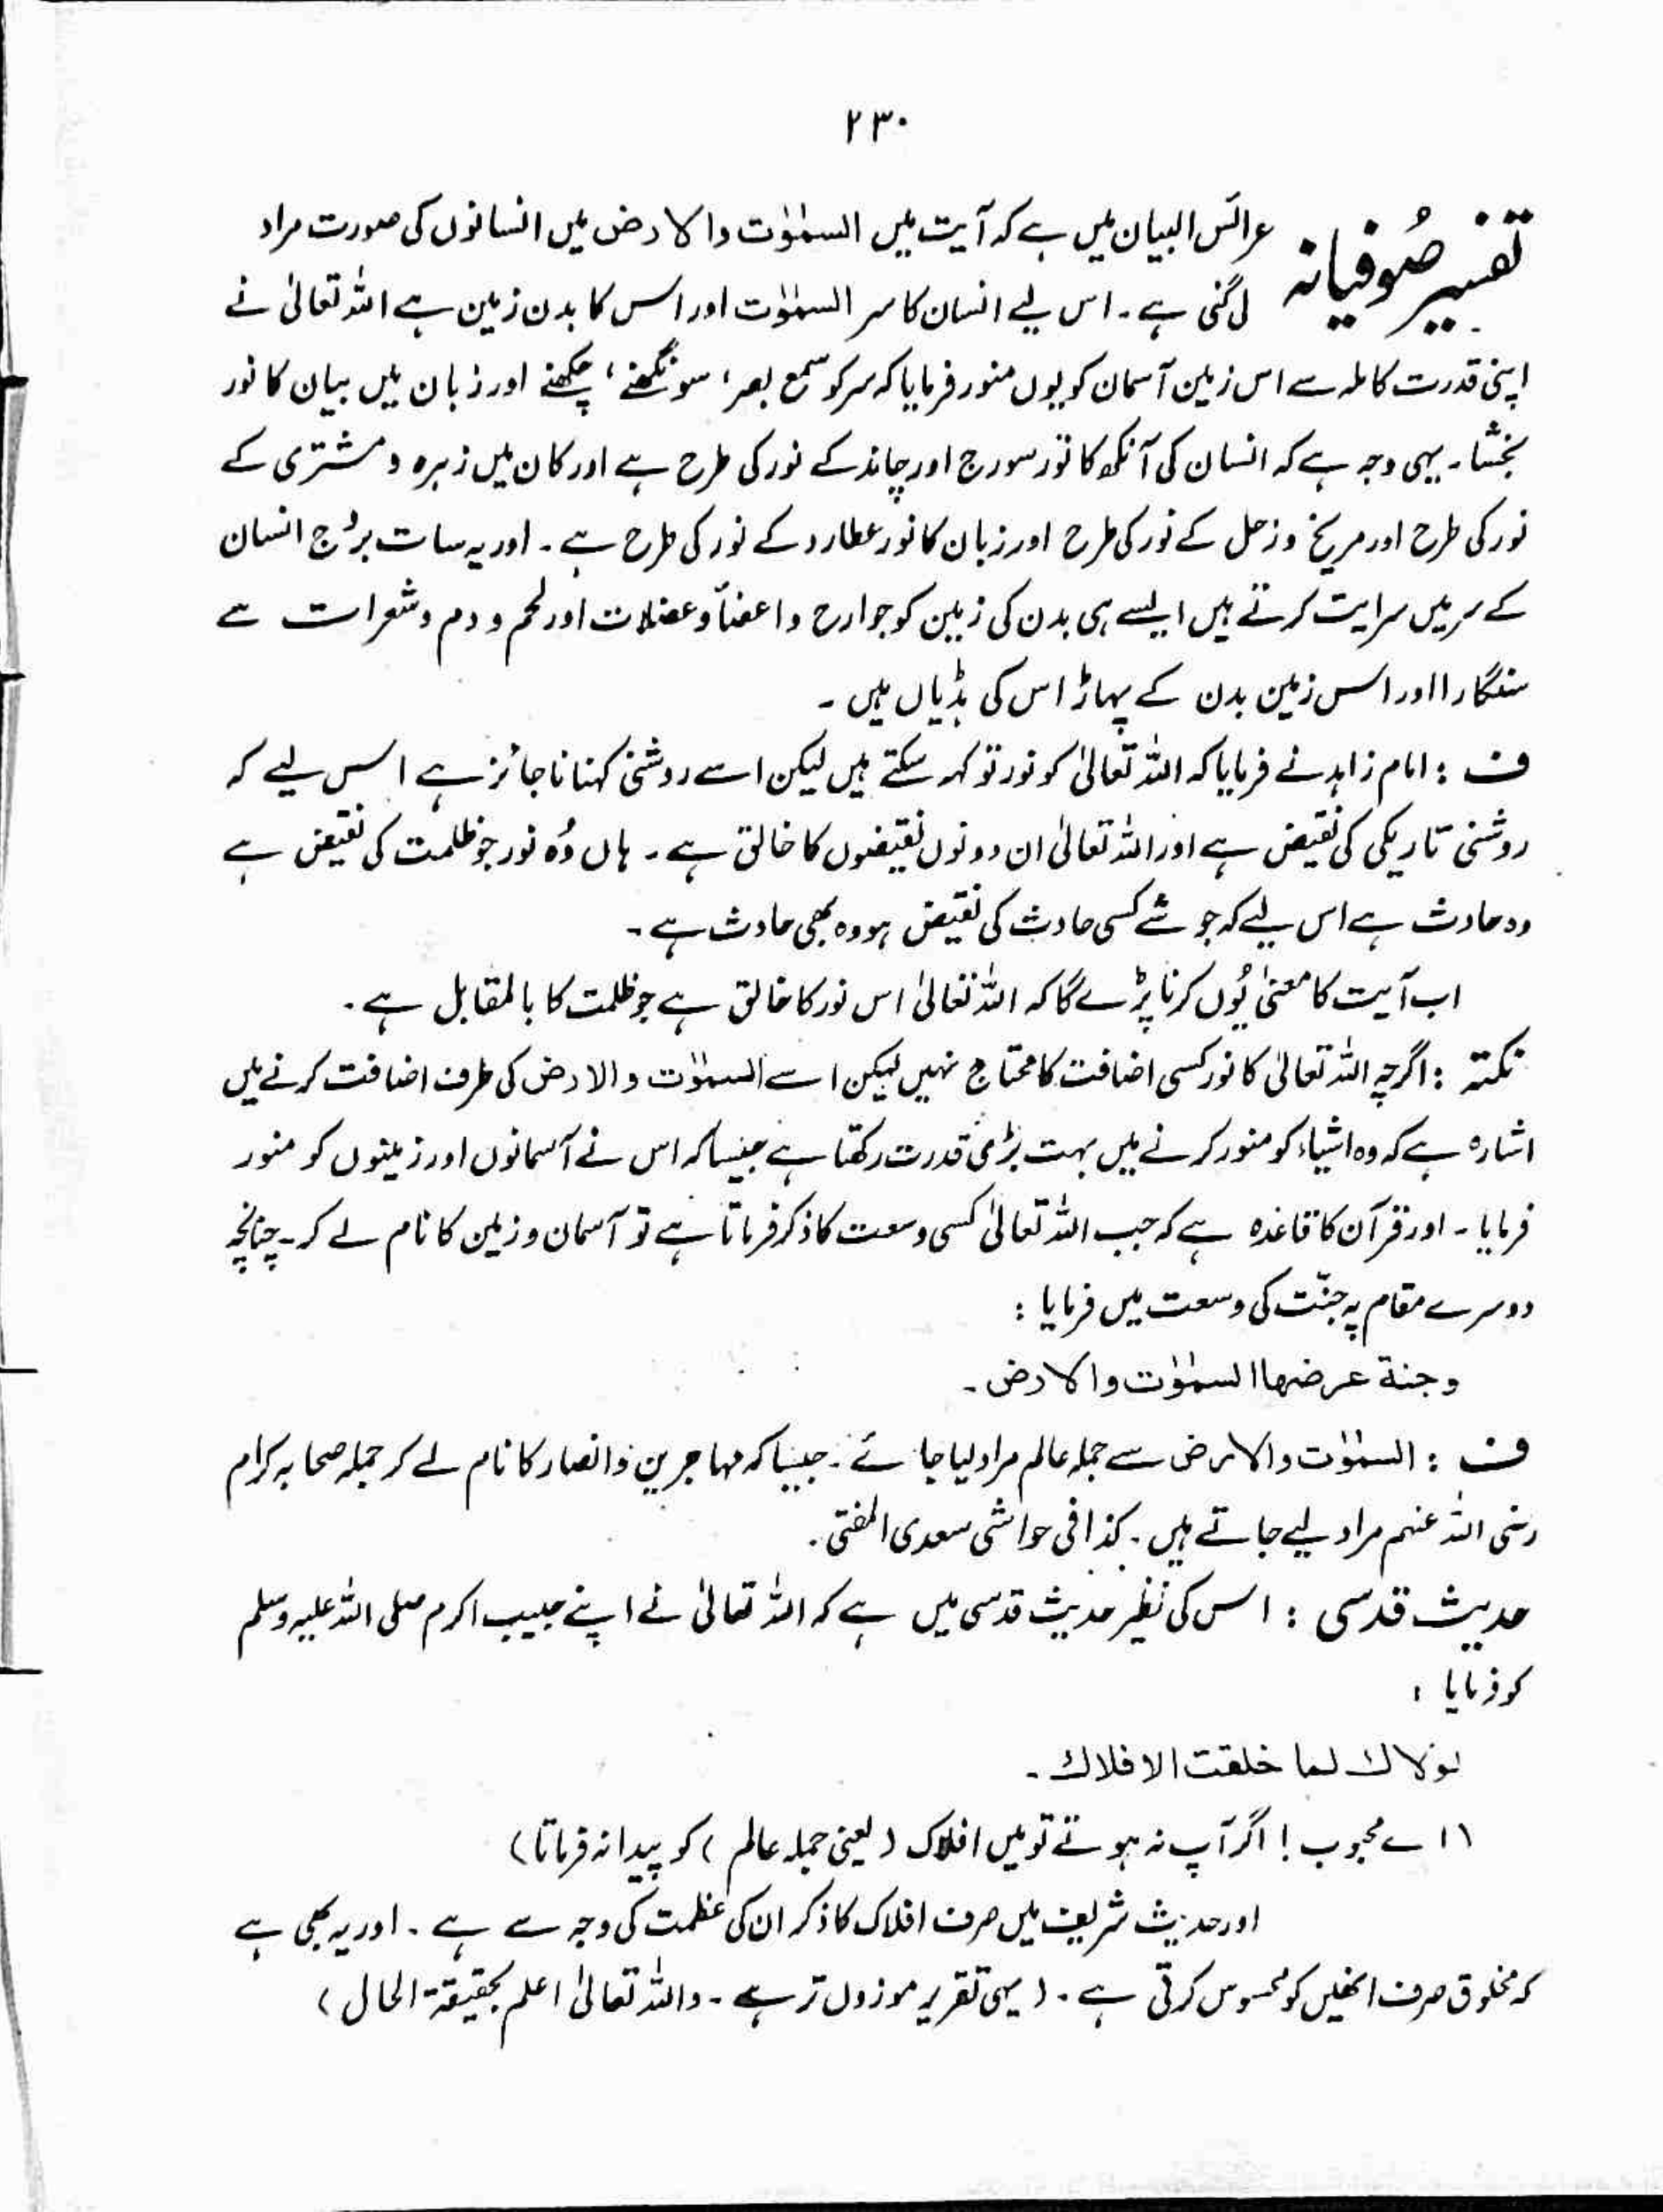 ۲۳۰
تفسیر صُوفیانہ
عرائس البیان میں ہے کہ آیت میں السمٰوٰت والارض میں انسانوں کی صورت مراد
لی گئی ہے۔ اس لیے انسان کا سر السمٰوٰت اور اس کا بدن زمین ہے اللہ تعالیٰ نے
اپنی قدرت کاملہ سے اس زمین آسمان کو یوں منور فرمایا کہ سر کو سمع بصر، سونگھنے، چکھنے اور زبان میں بیان کا نور
بخشا۔ یہی وجہ ہے کہ انسان کی آنکھ کا نور سورج اور چاند کے نور کی طرح ہے اور کان میں زہرہ و مشتری کے
نور کی طرح اور مریخ وزحل کے نور کی طرح اور زبان کا نور عطارد کے نور کی طرح ہے۔ اور یہ سات برُج انسان
کے سر میں سرایت کرتے ہیں ایسے ہی بدن کی زمین کو جوارح و اعضأ و عضلات اور لحم و دم و شعرات سے
سنگارا اور اس زمین بدن کے پہاڑ اس کی ہڈیاں ہیں ۔
ف : امام زاہد نے فرمایا کہ اللہ تعالیٰ کو نور تو کہہ سکتے ہیں لیکن اسے روشنی کہنا ناجائز ہے اس لیے کہ
روشنی تاریکی کی نقیض ہے اور اللہ تعالیٰ ان دونوں نقیضوں کا خالق ہے۔ ہاں وُہ نور جو ظلمت کی نقیض ہے
وہ حادث ہے اس لیے کہ جو شے کسی حادث کی نقیض ہو وہ بھی حادث ہے ۔
اب آیت کا معنیٰ یُوں کرنا پڑے گا کہ اللہ تعالیٰ اس نور کا خالق ہے جو ظلمت کا بالمقابل ہے ۔
نکتہ : اگرچہ اللہ تعالیٰ کا نور کسی اضافت کا محتاج نہیں لیکن اسے السمٰوٰت والارض کی طرف اضافت کرنے میں
اشارہ ہے کہ وہ اشیاء کو منور کرنے میں بہت بڑی قدرت رکھتا ہے جیسا کہ اس نے آسمانوں اور زمینوں کو منور
فرمایا ۔ اور قرآن کا قاعدہ ہے کہ جب اللہ تعالیٰ کسی وسعت کا ذکر فرماتا ہے تو آسمان و زمین کا نام لے کر۔ چنانچہ
دوسرے مقام پہ جنّت کی وسعت میں فرمایا :
وجنة عرضھا السمٰوٰت والارض ۔
ف : السمٰوٰت والارض سے جملہ عالم مراد لیا جائے ۔ جیسا کہ مہاجرین وانصار کا نام لے کر جملہ صحابہ کرام
رضی اللہ عنہم مراد لیے جاتے ہیں ۔ کذا فی حواشی سعدی المفتی ۔
حدیث قدسی : اس کی نظیر حدیث قدسی میں ہے کہ اللہ تعالیٰ نے اپنے حبیب اکرم صلی اللہ علیہ وسلم
کو فرمایا :
لولاك لما خلقت الافلاك ۔
(اے محبوب ! اگر آپ نہ ہوتے تو میں افلاک (یعنی جملہ عالم) کو پیدا نہ فرماتا)
اور حدیث شریف میں صرف افلاک کا ذکر ان کی عظمت کی وجہ سے ہے ۔ اور یہ بھی ہے
کہ مخلوق صرف انھیں کو محسوس کرتی ہے ۔ (یہی تقریر موزوں تر ہے ۔ واللہ تعالیٰ اعلم بحقیقۃ الحال)